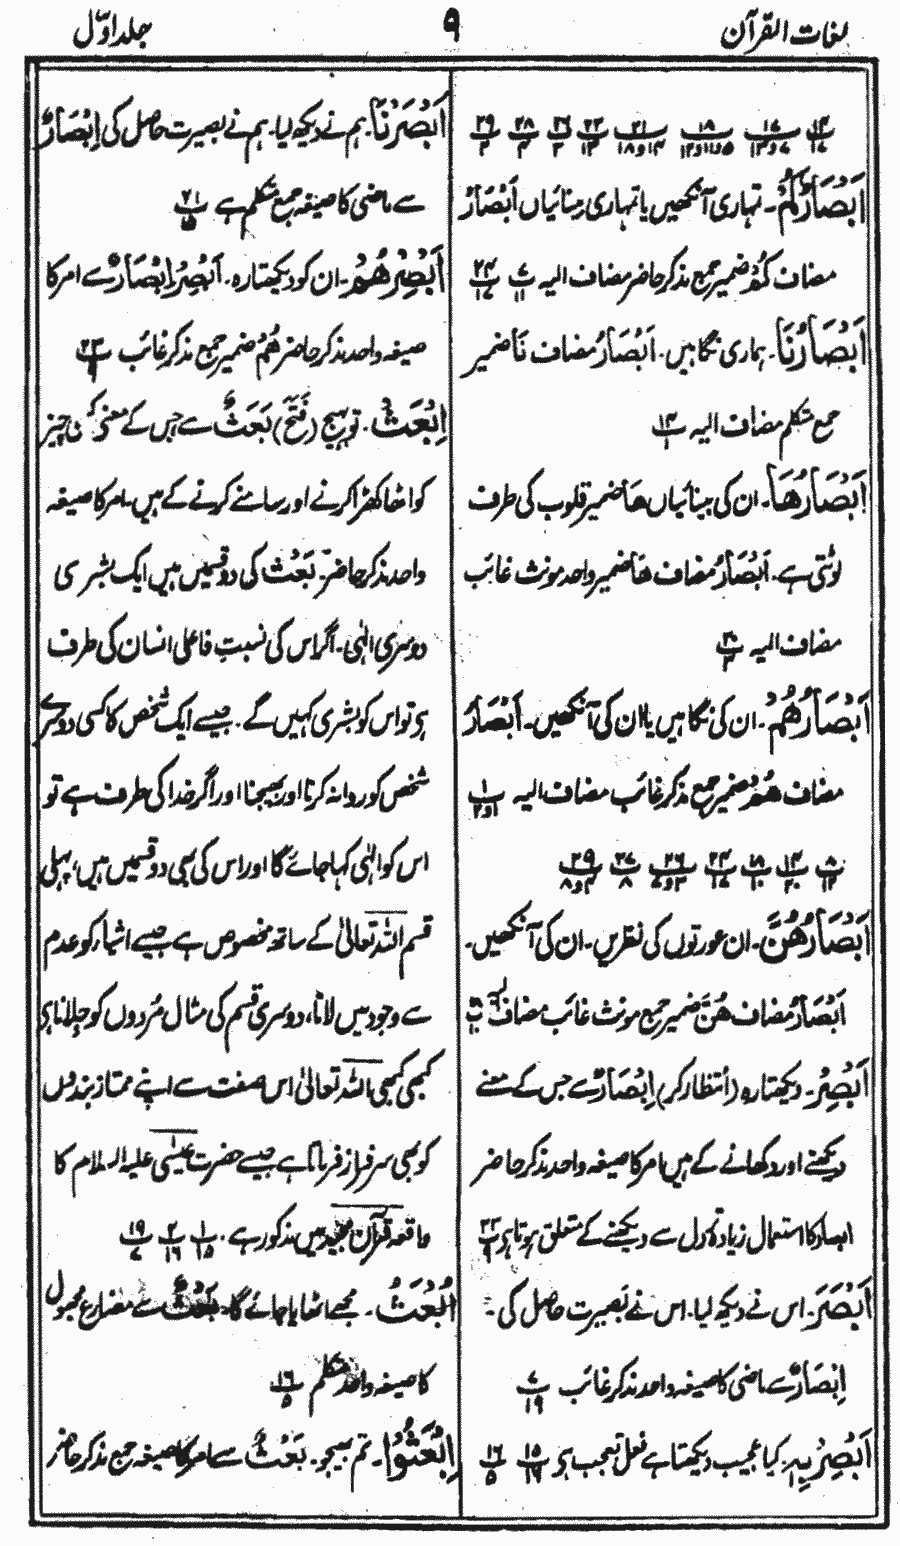 لغات القرآن
۹
جلد اوّل
۱۴/۱۷ ۱۷/۷و۱۳ ۱۸/۵و۱۱و۱۲ ۲۱/۱۴و۱۸ ۲۲/۱۳ ۲۶/۳ ۲۸/۳ ۲۹/۳
اَبْصَارُكُمْ۔ تمہاری آنکھیں یا تمہاری بینائیاں اَبْصَارُ
مضاف كُمْ ضمیر جمع مذکر حاضر مضاف الیہ ۷/۱۱ ۲۴/۱۷
اَبْصَارُنَا۔ ہماری نگاہیں۔ اَبْصَارُ مضاف نَا ضمیر
جمع متکلم مضاف الیہ ۱۴/۱
اَبْصَارُهَا۔ ان کی بینائیاں هَا ضمیر قلوب کی طرف
لوٹتی ہے۔ اَبْصَارُ مضاف هَا ضمیر واحد مونث غائب
مضاف الیہ ۳۰/۳
اَبْصَارُهُمْ۔ ان کی نگاہیں یا ان کی آنکھیں۔ اَبْصَارُ
مضاف هُمْ ضمیر جمع مذکر غائب مضاف الیہ ۱/۲و۱
۸/۱۲ ۱۴/۲۰ ۱۸/۱۰ ۲۴/۱۷ ۲۶/۳و۷ ۲۷/۸ ۲۹/۴و۸
اَبْصَارُهُنَّ۔ ان عورتوں کی نظریں۔ ان کی آنکھیں۔
اَبْصَارُ مضاف هُنَّ ضمیر جمع مونث غائب مضاف الیہ ۱۸/۱۰
اَبْصِرْ۔ دیکھتا رہ (اُنتظار کر) اِبْصَارٌ سے جس کے معنے
دیکھنے اور دکھانے کے ہیں امر کا صیغہ واحد مذکر حاضر
ابصار کا استعمال زیادہ تر دل سے دیکھنے کے متعلق ہوتا ہی ۲۳/۹
اَبْصَرَ۔ اس نے دیکھ لیا۔ اس نے بصیرت حاصل کی۔
اِبْصَارٌ سے ماضی کا صیغہ واحد مذکر غائب ۷/۱۹
اَبْصِرْ بِهٖ کیا عجیب دیکھتا ہے فعل تعجب ہی ۱۵/۱۶ ۱۶/۵
اَبْصَرْنَا۔ ہم نے دیکھ لیا۔ ہم نے بصیرت حاصل کی اِبْصَارٌ
سے ماضی کا صیغہ جمع متکلم ہے ۲۱/۱۵
اَبْصِرْهُمْ۔ ان کو دیکھتا رہ۔ اَبْصِرْ اِبْصَارٌ سے امر کا
صیغہ واحد مذکر حاضر هُمْ ضمیر جمع مذکر غائب ۲۳/۹
اِبْعَثْ۔ تو بھیج (فَتَحَ) بَعَثَ سے جس کے معنی کسی چیز
کو اٹھا کھڑا کرنے اور سامنے کرنے کے ہیں۔ امر کا صیغہ
واحد مذکر حاضر۔ بَعْث کی دو قسمیں ہیں ایک بشری
دوسری الٰہی۔ اگر اس کی نسبت فاعلی انسان کی طرف
ہی تو اس کو بشری کہیں گے۔ جیسے ایک شخص کا کسی دوسرے
شخص کو روانہ کرنا اور بھیجنا اور اگر خدا کی طرف ہے تو
اس کو الٰہی کہا جائے گا اور اس کی بھی دو قسمیں ہیں، پہلی
قسم اللہ تعالیٰ کے ساتھ مخصوص ہے جیسے اشیاء کو عدم
سے وجود میں لانا، دوسری قسم کی مثال مُردوں کو جِلانا ہی
کبھی کبھی اللہ تعالیٰ اس صفت سے اپنے ممتاز بندوں
کو بھی سرفراز فرماتا ہے جیسے حضرت عیسٰی علیہ السلام کا
واقعہ قرآن مجید میں مذکور ہے۔ ۱/۱۵ ۲/۱۶ ۱۹/۷
اُبْعَثُ۔ مجھے اٹھایا جائے گا۔ بَعْثٌ سے مضارع مجہول
کا صیغہ واحد متکلم ۱۶/۵
اِبْعَثُوْا۔ تم بھیجو۔ بَعْثٌ سے امر کا صیغہ جمع مذکر حاضر